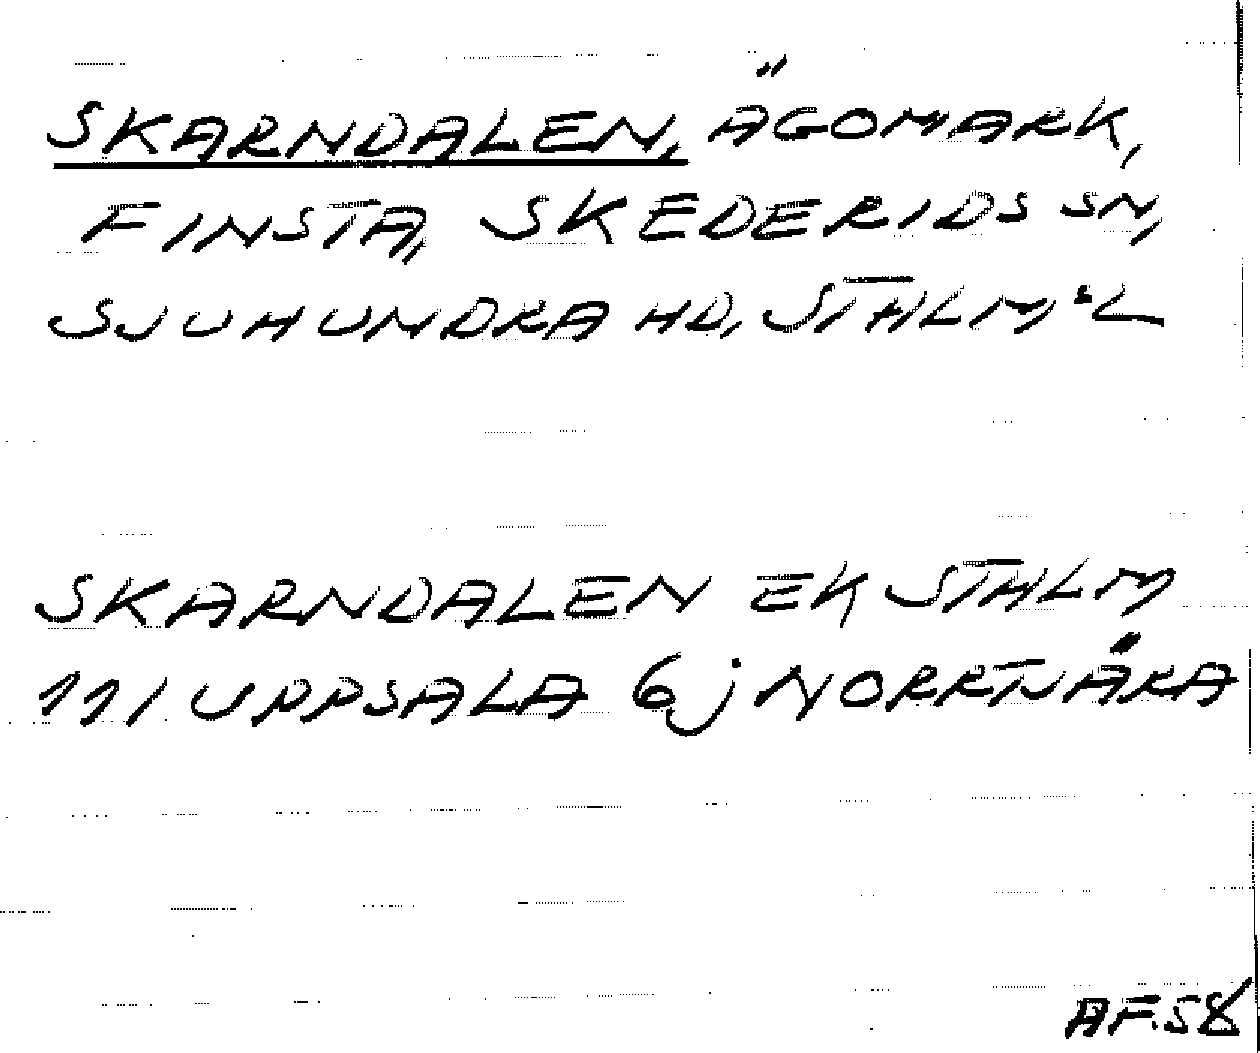 SKARNDALEN, ÄGOMARK,
FINSTA, SKEDERIDS SN,
SJUHUNDRA HD, STHLMS L
SKARNDALEN EK STHLM
111 UPPSALA 6j NORRTÄRA
AF.58